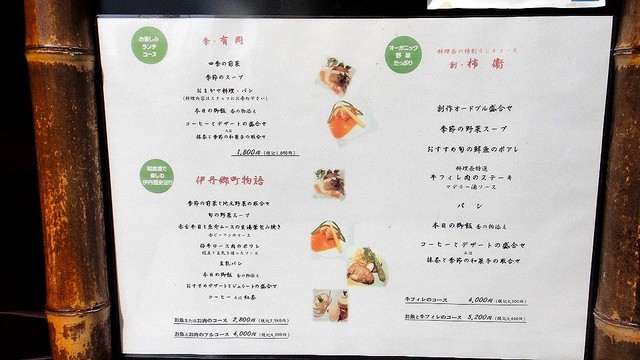 お楽しみ
ランチ
コース
季・有岡
四季の前菜
季節のスープ
おまかせ料理・パン
(料理内容はスタッフにお尋ね下さい)
本日の御飯 香の物添え
コーヒーとデザートの盛合せ
又は
抹茶と季節の和菓子の取合せ
1,800円
和食器で
楽しむ
伊丹郷町物語
季節の前菜と地元野菜の取合せ
旬の野菜スープ
豆乳パン
本日の御飯 香の物添え
おすすめデザートとジェラートの盛合せ
コーヒー 又は 紅茶
お魚またはお肉のコース 2,800円
お魚とお肉のフルコース 4,000円
オーガニック
野菜
たっぷり
料理長の特別ランチコース
創・柿衛
創作オードブル盛合せ
季節の野菜スープ
おすすめ旬の鮮魚のポアレ
料理長特選
牛フィレ肉のステーキ
マデラー酒ソース
パン
本日の御飯 香の物添え
コーヒーとデザートの盛合せ
又は
抹茶と季節の和菓子の取合せ
牛フィレのコース 4,000円(税込4,200円)
お魚と牛フィレのコース 5,200円(税込5,460円)